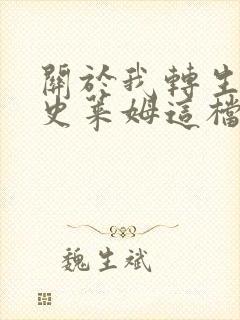 關於我轉生
史萊姆這檔
魏生斌